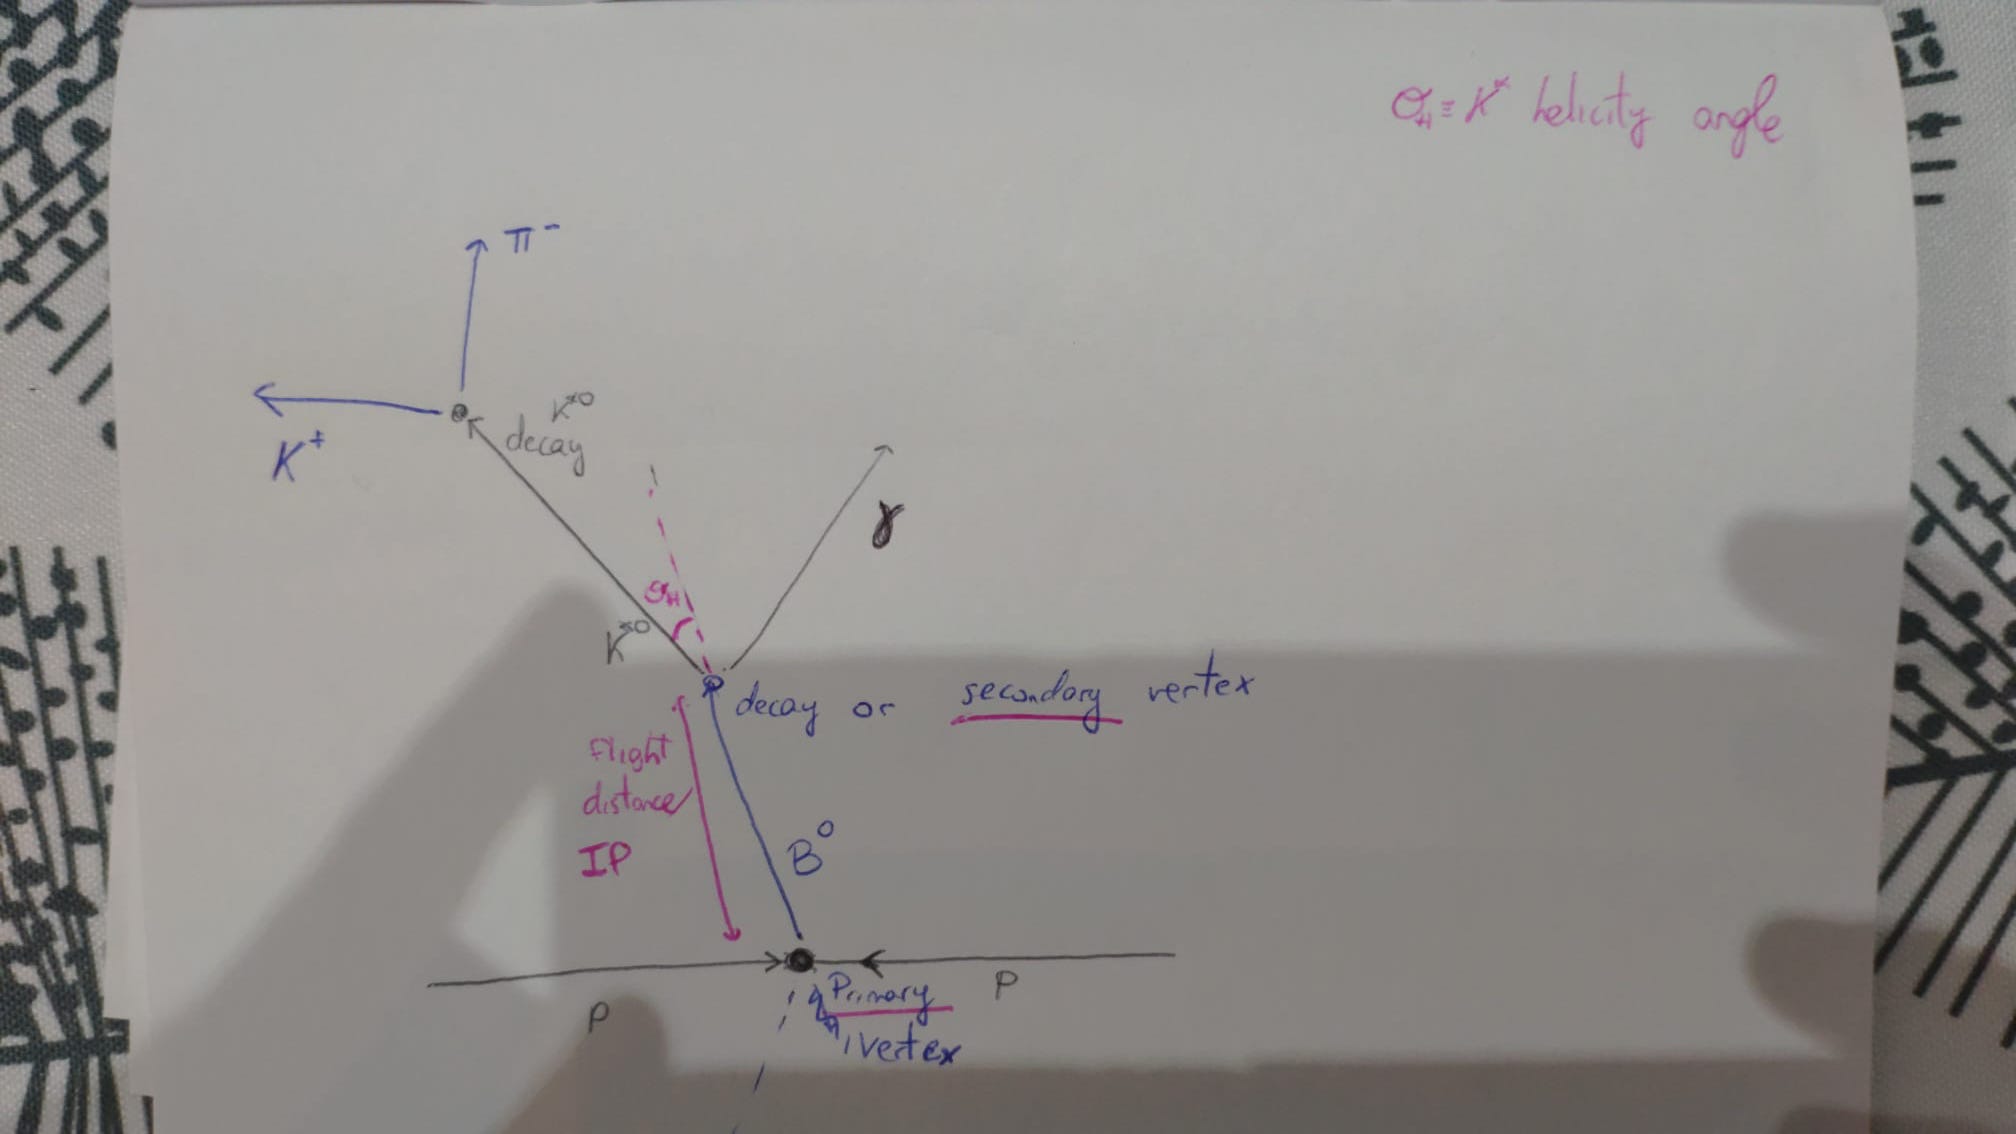 θ_H ≡ K* helicity angle
π⁻
K⁺
K*⁰
decay
γ
θ_H
K*⁰
decay or secondary vertex
Flight
distance
IP
B⁰
p
p
Primary
vertex